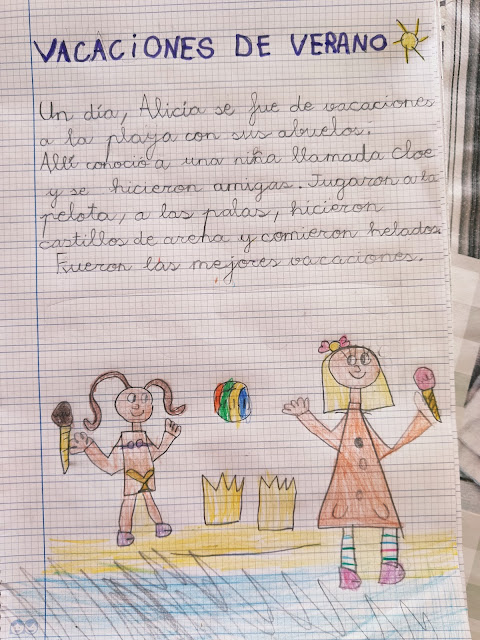 VACACIONES DE VERANO
Un día, Alicia se fue de vacaciones
a la playa con sus abuelos.
Allí conoció a una niña llamada Cloe
y se hicieron amigas. Jugaron a la
pelota, a las palas, hicieron
castillos de arena y comieron helados.
Fueron las mejores vacaciones.